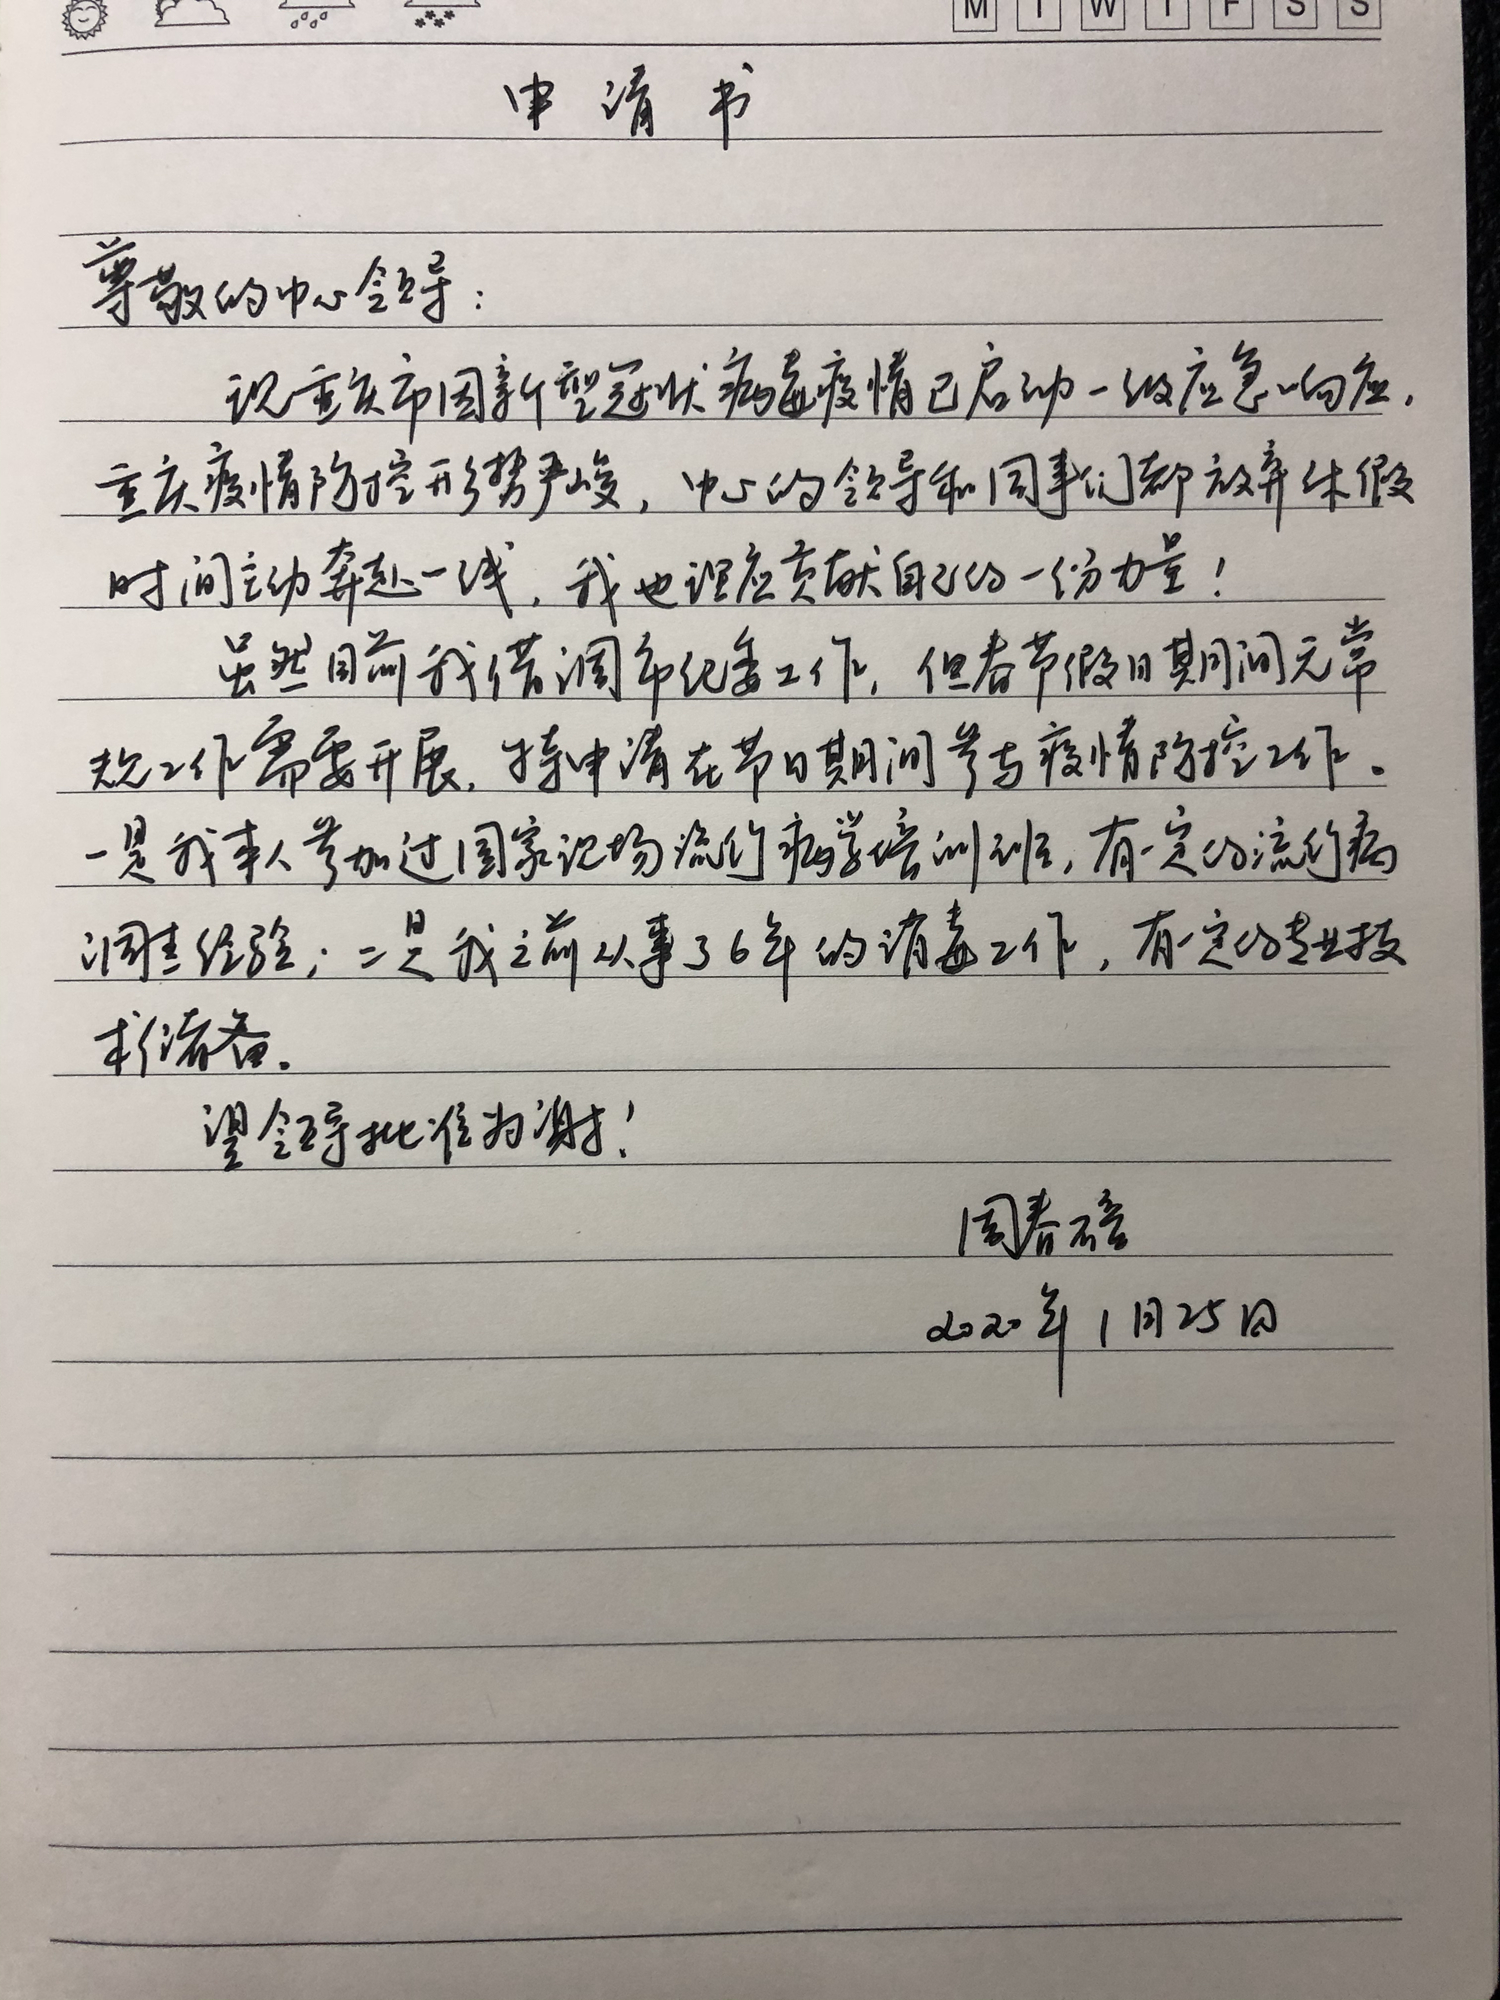 M T W T F S S
申请书
尊敬的中心领导：
现重庆市因新型冠状病毒疫情已启动一级应急响应，
重庆疫情防控形势严峻，中心的领导和同事们都放弃休假
时间主动奔赴一线，我也理应贡献自己的一份力量！
虽然目前我借调市纪委工作，但春节假日期间无常
规工作需要开展，特申请在节日期间参与疫情防控工作。
一是我本人参加过国家现场流行病学培训班，有一定的流行病
调查经验；二是我之前从事了6年的消毒工作，有一定的专业技
术储备。
望领导批准为谢！
周春碚
2020年1月25日